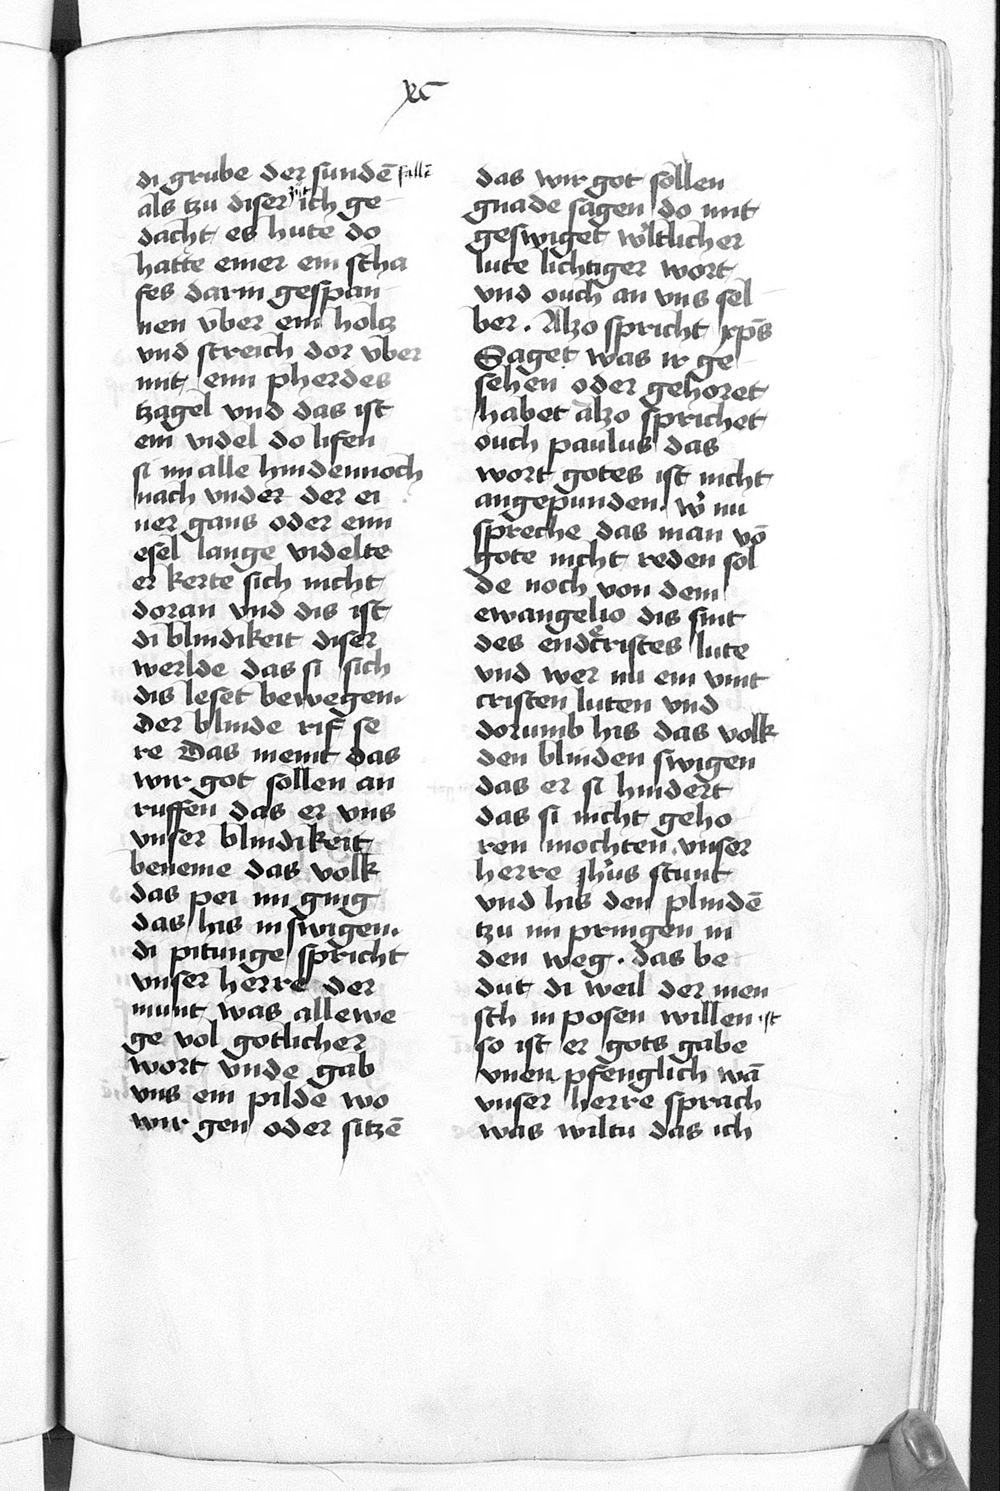 xc
di grube der sundē fallē
als tzu diser zijt ich ge
dacht es hute do
hatte einer ein scha
fes darm gespan
nen vber ein holtz
vnd streich dor vber
mit einn pherdes
tzagel vnd das ist
ein videl do lifen
si im alle hindennoch
nach vnder der ei
ner gans oder einn
esel lange videlte
er kerte sich nicht
doran vnd dis ist
di blindikeit diser
werlde das si sich
dis leset bewegein.
Der blinde rif se
re Das meint das
wir got sollen an
ruffen das er vns
vnser blindikeit
beneme das volk
das pei im ging
das his in swigen.
di pitunge spricht
vnser herre der
munt was allewe
ge vol gotlicher
wort vnde gab
vns ein pilde wo
wir gen oder sitzē
das wir got sollen
gnade sagen do mit
geswiget w'ltlicher
lute lichtiger wort
vnd ouch an vns sel
ber. Alzo spricht xp̄s
Saget was ir ge
sehen oder gehoret
habet alzo sprichet
ouch paulus das
wort gotes ist nicht
angepunden. w' nu
spreche das man vō
gote nicht reden sol
de noch von dem
ewangelio dis sint
des endecristes lute
vnd wer nu ein vint
cristen luten vnd
dorumb his das volk
den blinden swigen
das er si hindert
das si nicht geho
ren mochten. vnser
herre jh'us stunt
vnd his den plindē
tzu im pringen in
den weg. das be
dut di weil der men
sch in posen willen ist
so ist er gots gabe
vnenpfenglich wā
vnser herre sprach
was wiltu das ich